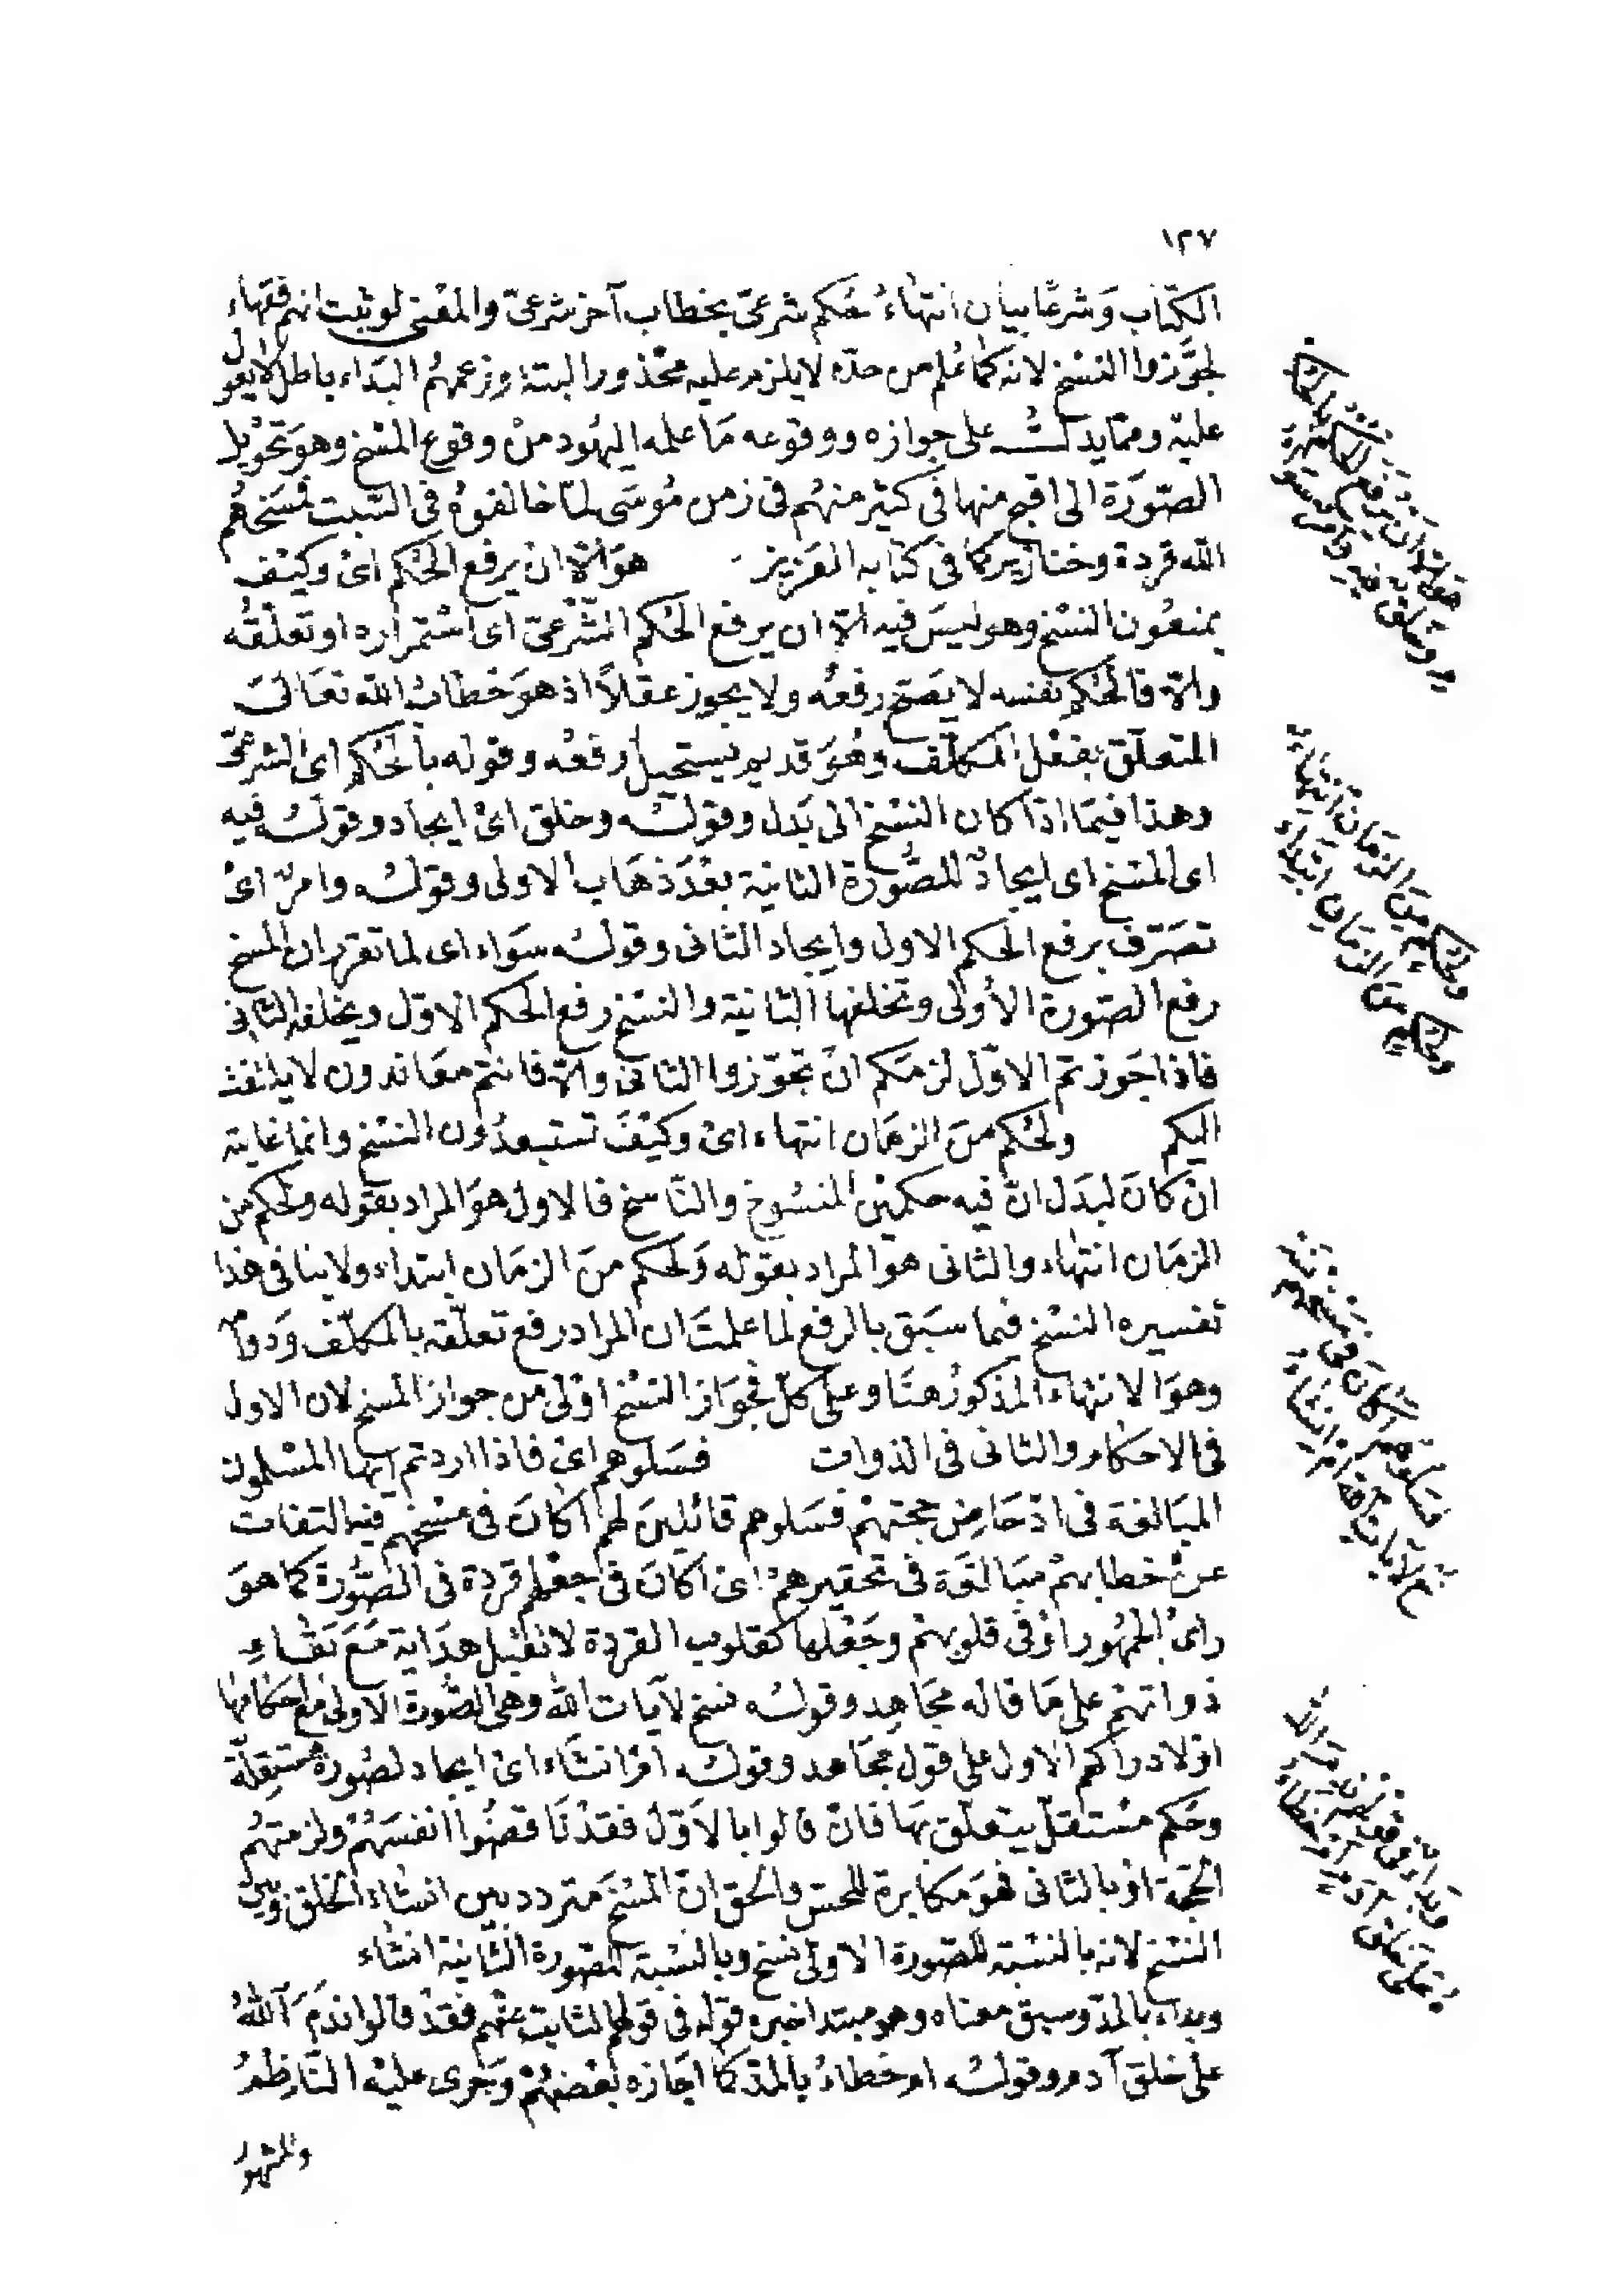 ١٢٧
الكتاب وشرعًا بيان انتهاءُ حكم شرعىّ بخطاب آخر شرعىّ والمعنى لو ثبت انهم فقهاء
لجوَّزوا النسْخ لانه كما عُلم من حدّه لا يلزم عليه محْذور البتة وزعمهُم البَدَاء باطل لا يعول
عليْه وممّا يدلّك على جوازه ووقوعه مَا علمه اليهُود منْ وقوع المسْخ وهوَ تحْوْيل
الصّورَة الى اقبح منها فى كثير منهُم فى زمن مُوسَى لمّا خالفوهُ فى السَّبت فمسَخهُم
الله قردة وخنازير كما فى كتابه العَزيز هوَ الاّ ان يرفع الحُكم اىْ وكيْف
يمنعُون النسْخ وهو ليسَ فيه الاّ ان يرفع الحُكم الشّرْعىّ اى اسْتمْراره او تعلّقُه
والاّ فالحُكم نفسه لا يَصَحّ رفعُه ولا يجوز عقلاً اذ هوَ خطابُ الله تعَالىَ
المتعلّق بفعْل المكلّف وهُوَ قديم يستحيل رفعُه وقوله بالحُكم اى الشرعىّ
وهذا فيمَا اذا كان النسْخ الى بَدل وقولُه وخلق اىْ ايجاد وقولُه فيه
اى المسْخ اى ايجادٌ للصُّورَة الثانية بعْدَ ذهَاب الاولى وقولُه وامرٌ اىْ
تصَرّف برفع الحكم الاول وايجاد الثانى وقولُه سوَاء اى لما تقرر ان المسخ
رفع الصّورة الأولى وتخلفها الثانية والنسْخ رفع الحكم الاوّل ويخلفه الثانى
فاذا جَوزتم الاوّل لزمَكم انْ تجَوّزوا الثانى والاّ فانتم معَاندون لا يلتفت
اليكم ولحُكم منَ الزمَان انتهاء اىْ وكيْفَ تستبعدُون النسْخ وانما غايته
انْ كانَ لبدَل انّ فيه حكميْن المنسُوخ والنّاسخ فالاول هوَ المراد بقوله ولحكم من
الزمَان انتهاء والثانى هوَ المراد بقوله وَلحكم منَ الزمَان ابتداء ولا ينافى هذا
تفسيره النسْخ فيما سبَق بالرفع لما علمتَ ان المراد رفع تعلّقه بالمكلّف وَدوامه
وهوَ الانتهاء المذكورُ هنَا وعلى كلّ فجوَاز النسْخ اوْلى من جواز المسخ لان الاول
فى الاحكام والثانى فى الذوات فسَلوهم اىْ فاذا اردتم ايها المسْلمون
المبَالغة فى ادْحَاض حجتهمْ فسَلوهم قائلينَ لهم اكانَ فى مسْخهم فيه التفات
عنْ خطابهمْ مبَالغَة فى تحقيرهمْ اىْ اكانَ فى جعْلهم قردة فى الصُّورَة كما هوَ
راىُ الجمْهُور اوْ فى قلوبهمْ وجَعْلها كقلوب القردة لا تقبَل هدَاية مَعَ بَقَاءِ
ذواتهمْ على مَا قاله مجَاهد وقولُه نسخ لآيات الله وهى الصُّورة الاولى مع احكامها
اوْ لادراكهم الاول على قول مجَاهد وقولُه امْ انشاء اىْ ايجاد لصُورة مسْتقلّة
وحُكم مسْتقلّ يتعلّق بهَا فانْ قالوا بالاَوّل فقدْ نَاقضُوا انفسَهُمْ ولزمتهُم
الحجّة اوْ بالثانى فهوَ مكابرة للحسّ والحق انّ المسْخَ متردد بين انشاء الخلق وبين
النسْخ لانه بالنسْبة للصّورة الاولى نسخ وبالنسْبة للصّورة الثانية انشاء
وبداء بالمدّ وسبق معناه وهو مبتدا خبره قوله فى قولهم الثابت عنْهم فقدْ قالوا نَدمَ اللهُ
على خلق آدم وقولُه امْ خطاءُ بالمدّ كما اجَازه بعْضهُمْ وَجَرى عليْه النّاظمُ
والمشهور
ولحكم من الزمان انتهاء
ولحكم من الزمان ابتداء